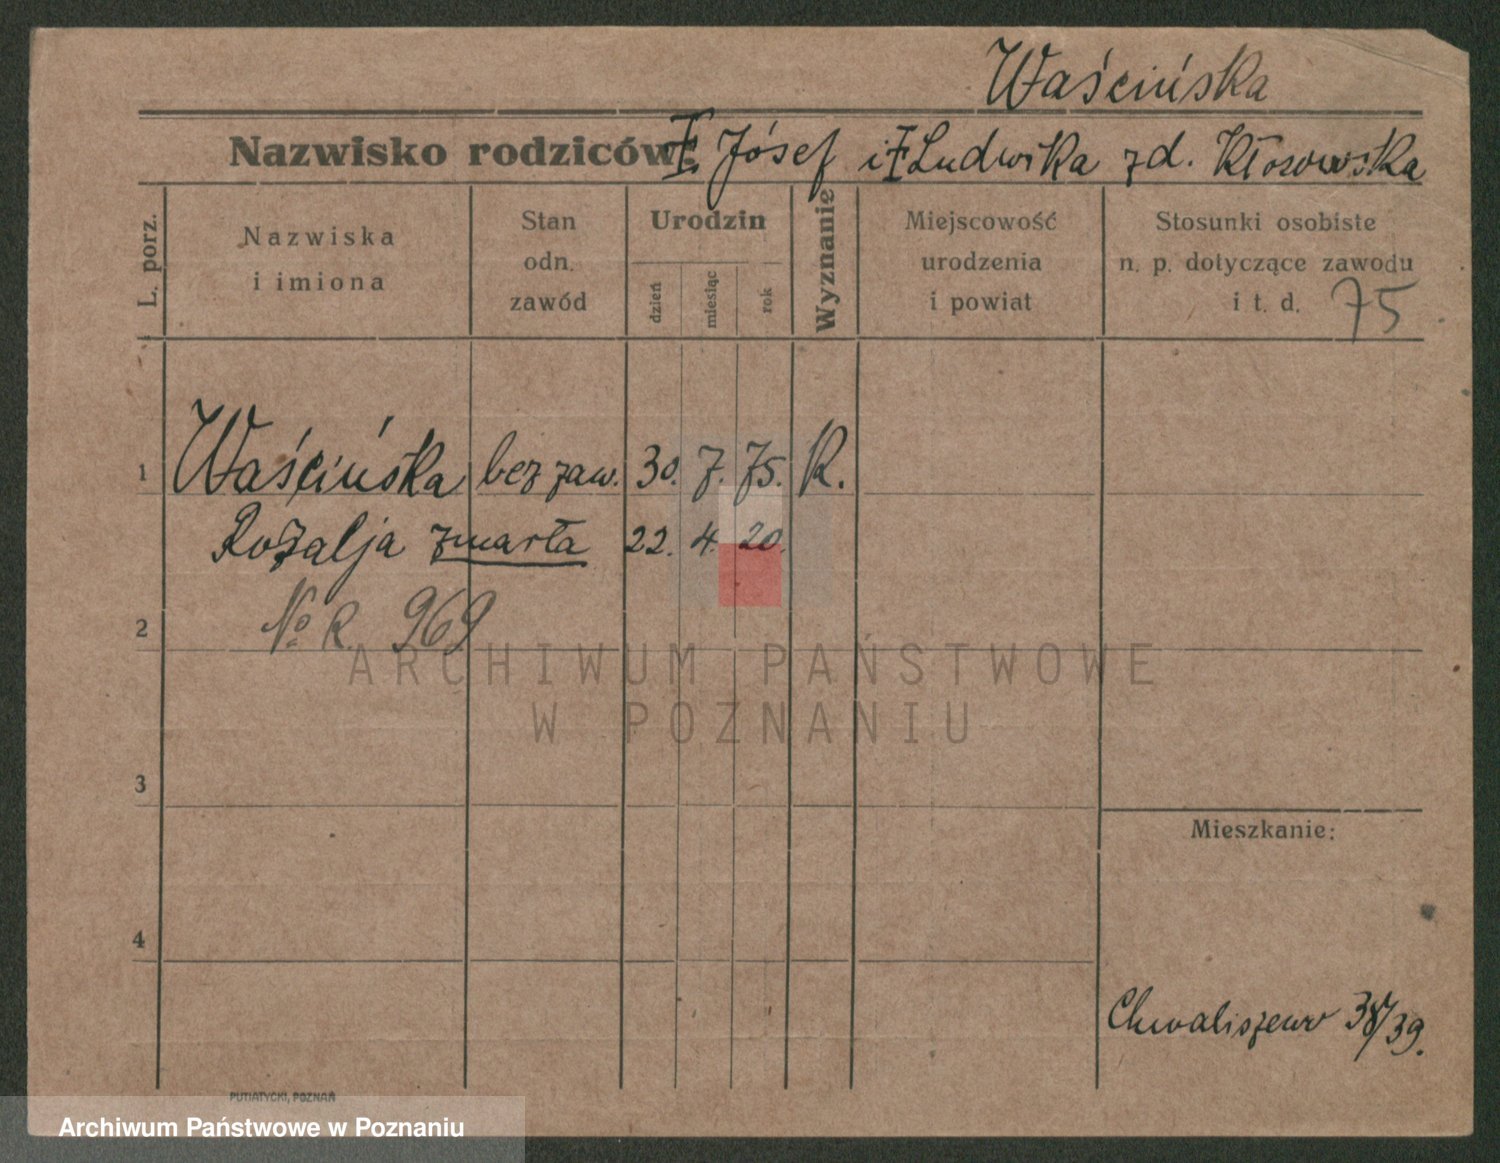 Waścińska
Nazwisko rodziców: Józef i Ludwika zd. Kłosowska
L. porz.
Nazwiska
i imiona
Stan
odn.
zawód
Urodzin
dzień
miesiąc
rok
Wyznanie
Miejscowość
urodzenia
i powiat
Stosunki osobiste
n. p. dotyczące zawodu
i t. d. 75
1 Waścińska bez zaw. 30. 7. 75. K.
Rozalja zmarła 22. 4. 20.
2 No R. 969
3
Mieszkanie:
4
Chwaliszewo 38/39.
PUTIATYCKI, POZNAŃ
ARCHIWUM PAŃSTWOWE
W POZNANIU
Archiwum Państwowe w Poznaniu